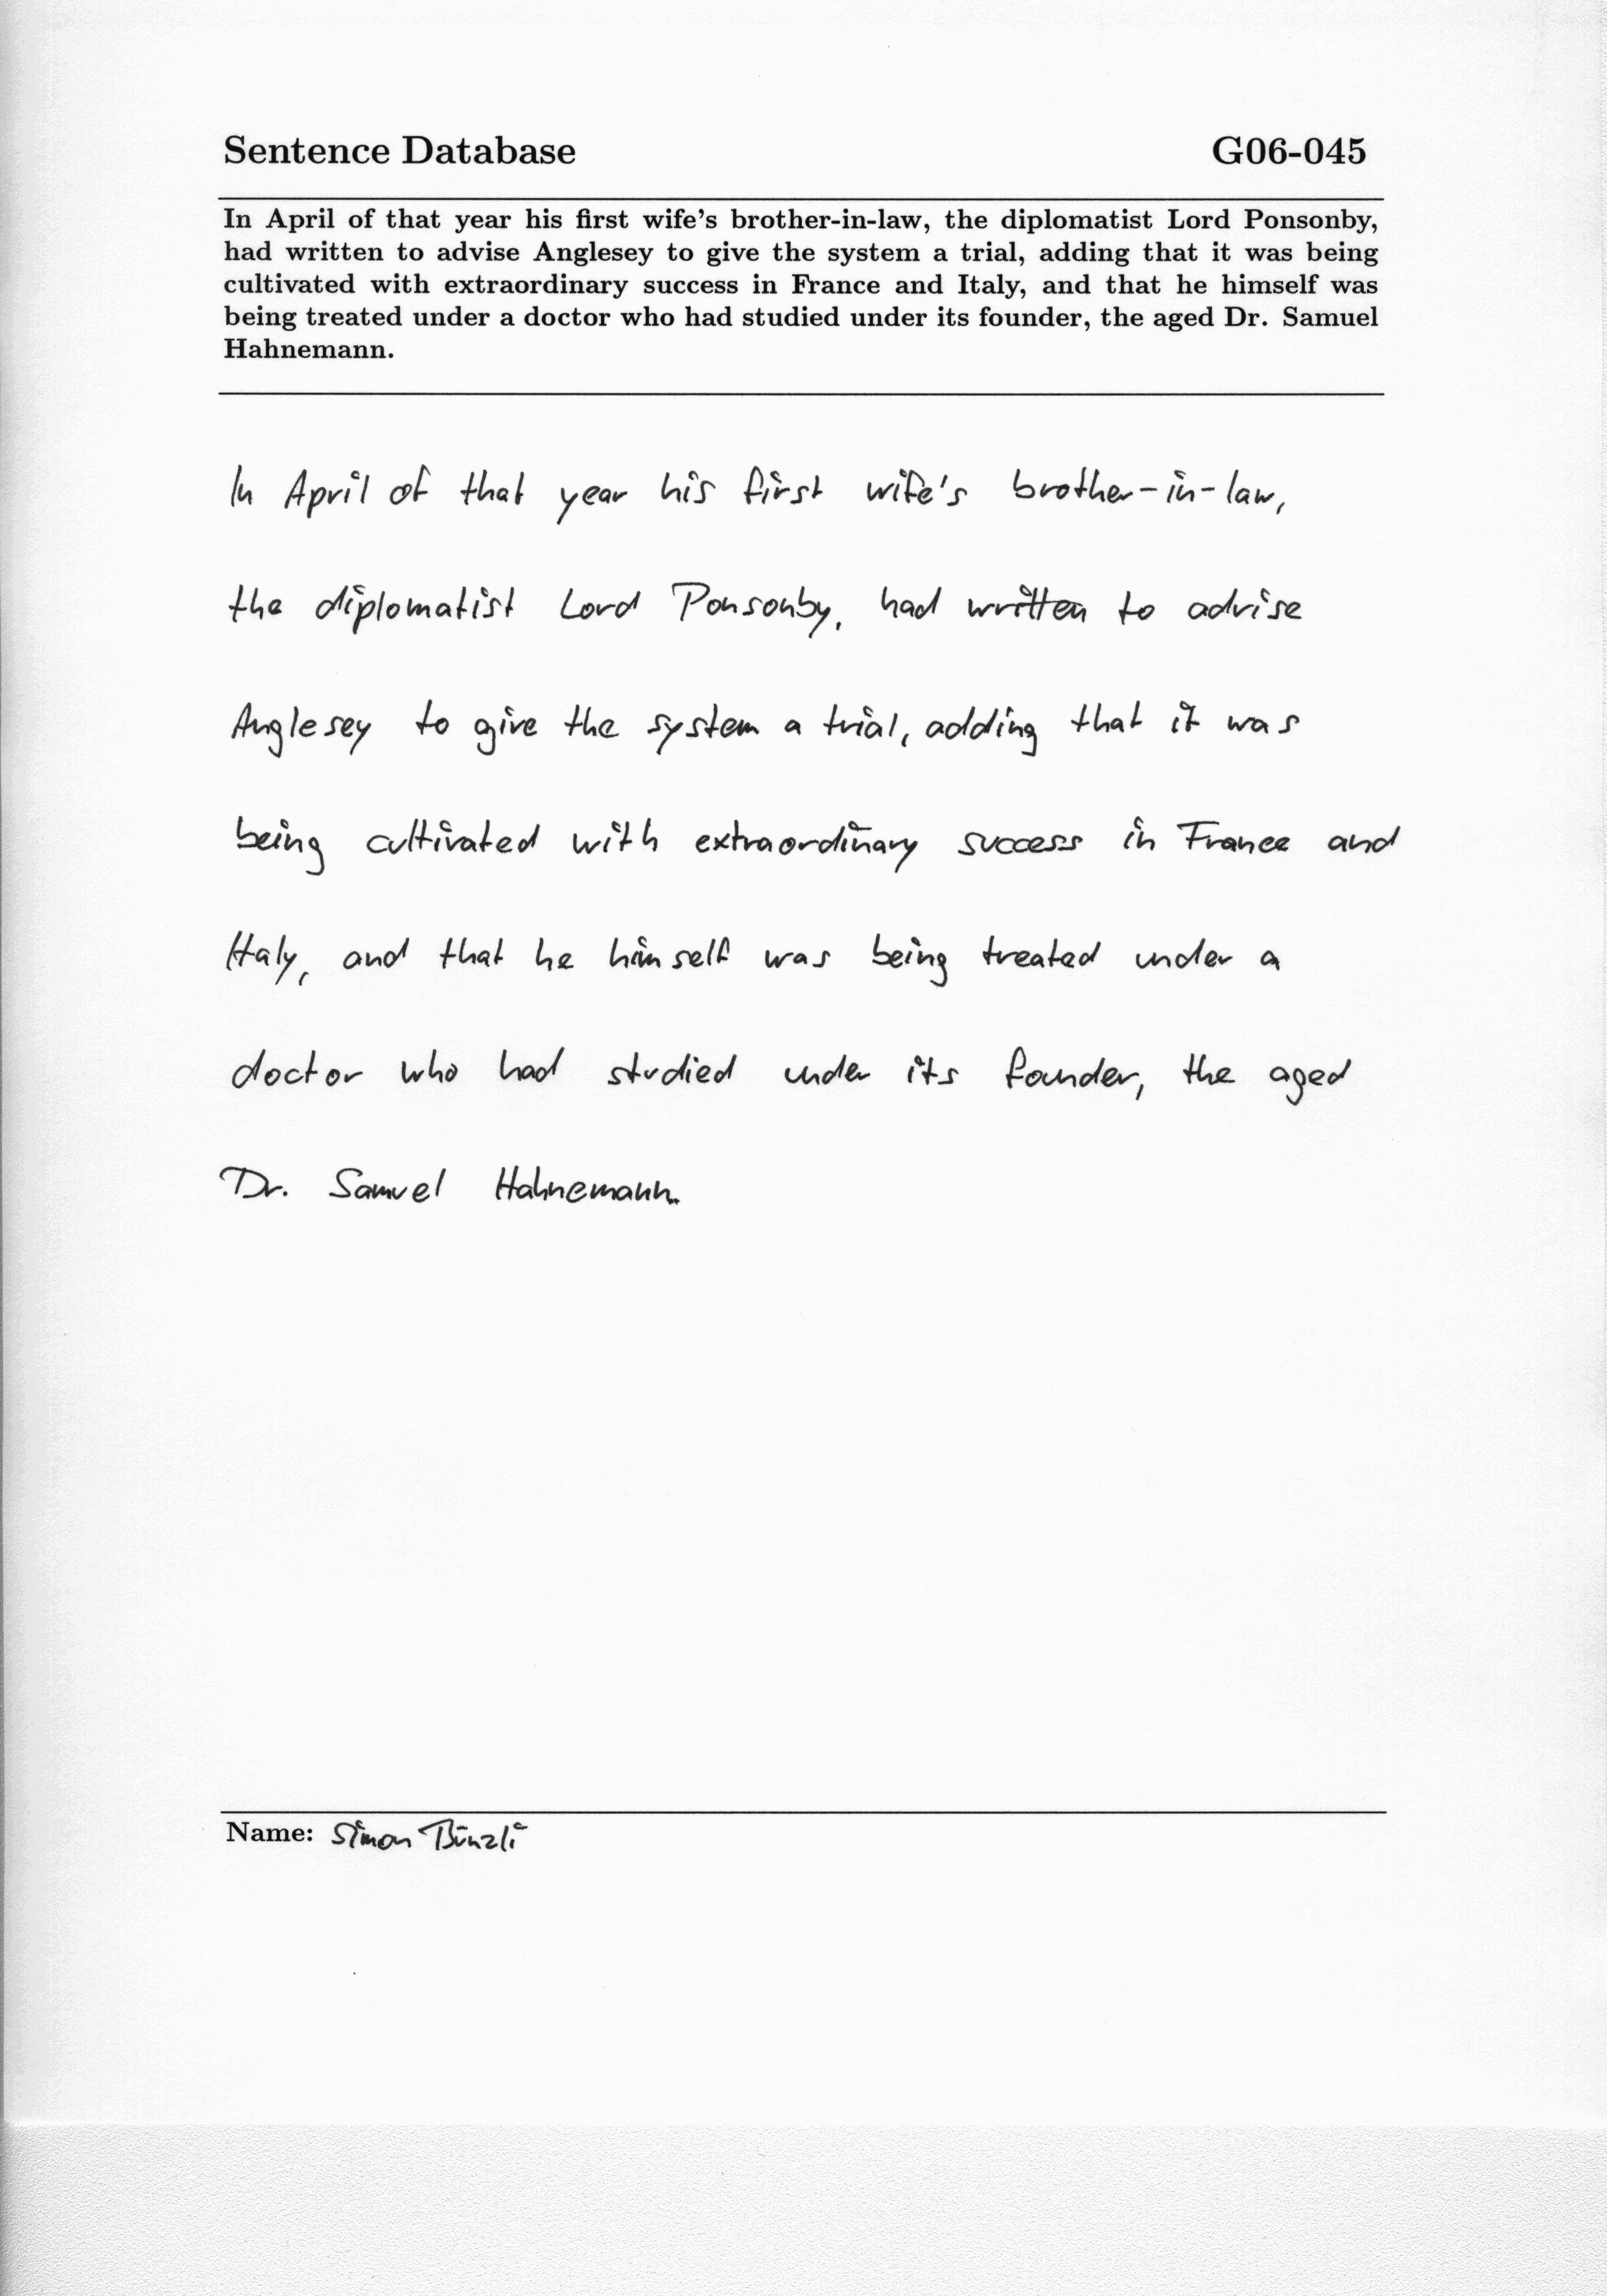 Sentence Database G06-045
In April of that year his first wife's brother-in-law, the diplomatist Lord Ponsonby,
had written to advise Anglesey to give the system a trial, adding that it was being
cultivated with extraordinary success in France and Italy, and that he himself was
being treated under a doctor who had studied under its founder, the aged Dr. Samuel
Hahnemann.
In April of that year his first wife's brother-in-law,
the diplomatist Lord Ponsonby, had written to advise
Anglesey to give the system a trial, adding that it was
being cultivated with extraordinary success in France and
Italy, and that he himself was being treated under a
doctor who had studied under its founder, the aged
Dr. Samuel Hahnemann.
Name: Simon Bünzli